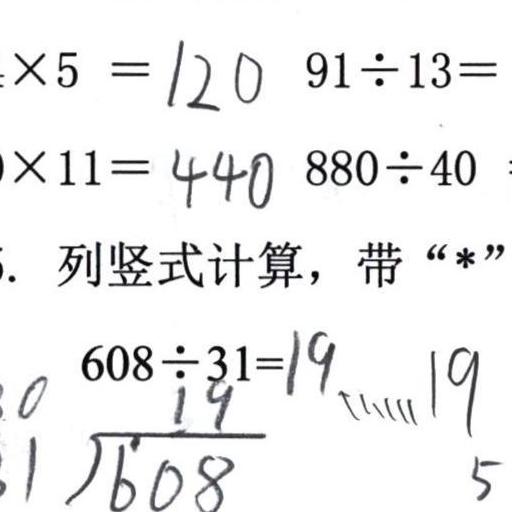 ×5 =120 91÷13=
×11=440 880÷40
列竖式计算，带“*”
608÷31=19……19
19
1）608 5